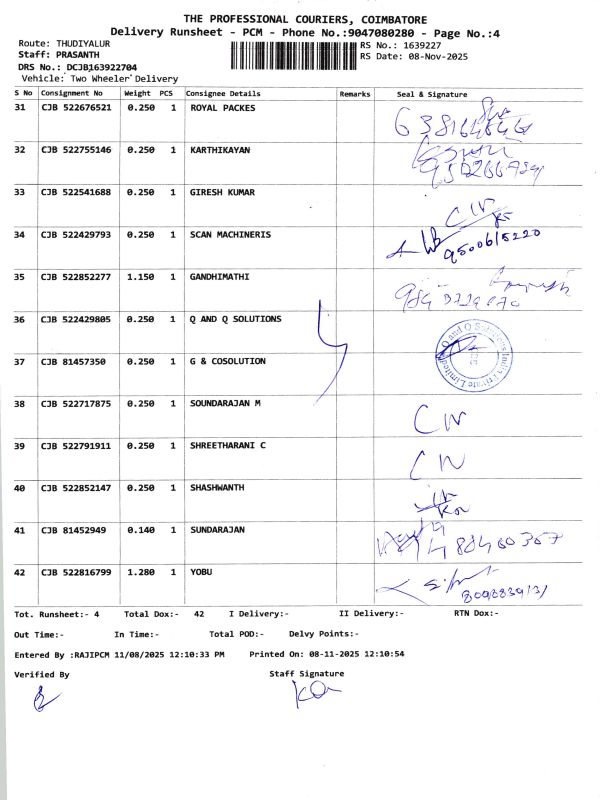 THE PROFESSIONAL COURIERS, COIMBATORE
Delivery Runsheet - PCM - Phone No.:9047080280 - Page No.:4
Route: THUDIYALUR
RS No.: 1639227
Staff: PRASANTH
RS Date: 08-Nov-2025
DRS No.: DCJB163922704
Vehicle: Two Wheeler Delivery
S No Consignment No Weight PCS Consignee Details Remarks Seal & Signature
31 CJB 522676521 0.250 1 ROYAL PACKES
32 CJB 522755146 0.250 1 KARTHIKAYAN
33 CJB 522541688 0.250 1 GIRESH KUMAR
34 CJB 522429793 0.250 1 SCAN MACHINERIS 9500615220
35 CJB 522852277 1.150 1 GANDHIMATHI
36 CJB 522429805 0.250 1 Q AND Q SOLUTIONS
37 CJB 81457350 0.250 1 G & COSOLUTION
38 CJB 522717875 0.250 1 SOUNDARAJAN M
39 CJB 522791911 0.250 1 SHREETHARANI C
40 CJB 522852147 0.250 1 SHASHWANTH
41 CJB 81452949 0.140 1 SUNDARAJAN
42 CJB 522816799 1.280 1 YOBU
Tot. Runsheet:- 4 Total Dox:- 42 I Delivery:- II Delivery:- RTN Dox:-
Out Time:- In Time:- Total POD:- Delvy Points:-
Entered By :RAJIPCM 11/08/2025 12:10:33 PM Printed On: 08-11-2025 12:10:54
Verified By Staff Signature